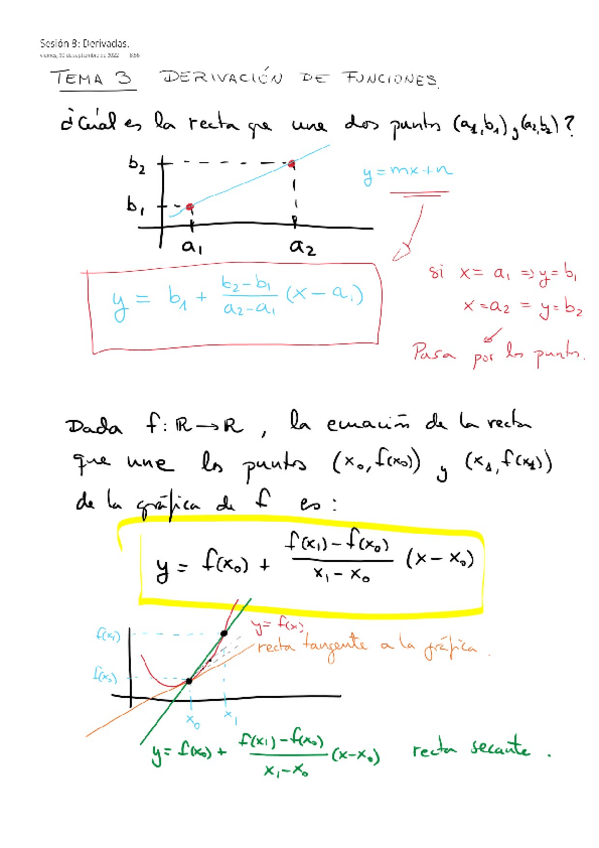 Sesión 3: Derivadas.
viernes, 30 de septiembre de 2022
TEMA 3 DERIVACIÓN DE FUNCIONES.
¿Cuál es la recta que une dos puntos (a₁,b₁) y (a₂,b₂)?
b₂
y=mx+n
b₁
a₁ a₂
si x = a₁ ⇒ y = b₁
y = b₁ + \frac{b₂-b₁}{a₂-a₁} (x-a₁)
x = a₂ = y = b₂
Pasa por los puntos.
Dada f: ℝ→ℝ, la ecuación de la recta
que une los puntos (x₀,f(x₀)) y (x₁,f(x₁))
de la gráfica de f es:
y = f(x₀) + \frac{f(x₁)-f(x₀)}{x₁-x₀} (x-x₀)
f(x₁)
y=f(x)
recta tangente a la gráfica.
f(x₀)
x₀ x₁
y = f(x₀) + \frac{f(x₁)-f(x₀)}{x₁-x₀} (x-x₀) recta secante.